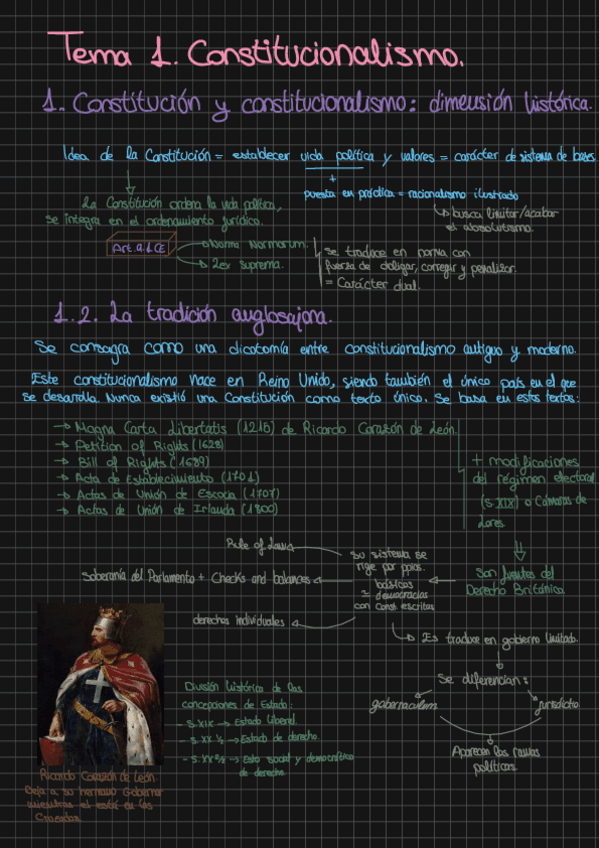 Tema 1. Constitucionalismo.
1. Constitución y constitucionalismo: dimensión histórica.
Idea de la Constitución = establecer vida política y valores = carácter de sistema de bases
+
puesta en práctica = racionalismo ilustrado
busca limitar/acabar
el absolutismo.
La Constitución ordena la vida política,
se integra en el ordenamiento jurídico.
Art. 9.1 CE
Norma Normarum.
Lex suprema.
Se traduce en norma con
fuerza de obligar, corregir y penalizar.
= Carácter dual.
1.2. La tradición anglosajona.
Se consagra como una dicotomía entre constitucionalismo antiguo y moderno.
Este constitucionalismo nace en Reino Unido, siendo también el único país en el que
se desarolla. Nunca existió una Constitución como texto único. Se basa en estos textos:
→ Magna Carta Libertatis (1215) de Ricardo Corazón de León.
→ Petition of Rights (1628)
→ Bill of Rights (1689)
→ Acta de Establecimiento (1701)
→ Actas de Unión de Escocia (1707)
→ Actas de Unión de Irlanda (1800)
+ modificaciones
del régimen electoral
(s. XIX) o Cámaras de
Lores
Son fuentes del
Derecho Británico.
Su sistema se
rige por ppios.
básicos
= democracias
con Const. escritas
Rule of Laws
Soberanía del Parlamento + Checks and balances
derechos individuales
Es traduce en gobierno limitado.
Se diferencian:
gobernaculum
jurisdictio
Aparecen las ramas
políticas
División histórica de las
concepciones de Estado:
- s. XIX → Estado liberal.
- s. XX ½ → Estado de derecho.
- s. XX 2/2 → Esta social y democrático
de derecho
Ricardo Corazón de León.
Deja a su hermano Gobernar
mientras el está en las
Cruzadas